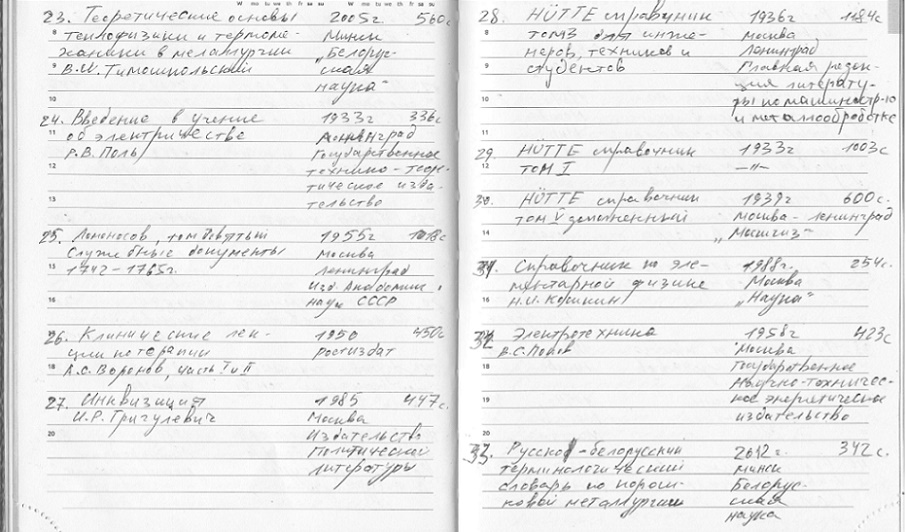 23. Теоретические основы 2005г 560с
теплофизики и термоме- Минск
ханики в металлургии „Белорус-
В.И. Тимошпольский ская
наука"
24. Введение в учение 1933г 336с
об электричестве Ленинград
Р.В. Поль Государственное
технико-теоре-
тическое изда-
тельство
25. Ломоносов, том девятый 1955г
Служебные документы Москва
1742-1765г. Ленинград
Изд. Академии
наук СССР
26. Клинические лек- 1950 450с
ции по терапии Ростиздат
А.С. Воронов, часть I и II
27. Инквизиция 1985 447с.
И.Р. Григулевич Москва
Издательство
политической
литературы
28. HÜTTE справочник 1936г 1184с
том 3 для инже- Москва
неров, техников и Ленинград
студентов Главная редак-
ция литерату-
ры по машиностр-ю
и металлообработке
29. HÜTTE справочник 1933г 1003с
том I —"—
30. HÜTTE справочник 1939г 600с.
том V Москва-Ленинград
„Машгиз"
31. Справочник по эле- 1988г. 254с.
ментарной физике Москва
Н.И. Кошкин „Наука"
32. Электротехника 1958г 423с
В.С. Попов Москва
Государственное
научно-техничес-
кое энергетическое
издательство
33. Русско-белорусский 2012г. 342с.
терминологический Минск
словарь по порош- Белорус-
ковой металлургии ская
наука